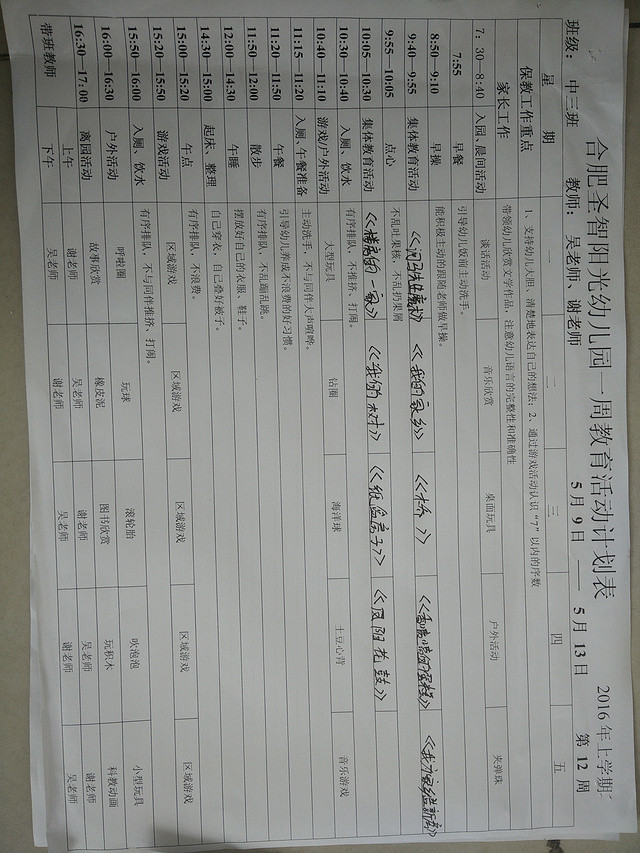 合肥圣智阳光幼儿园一周教育活动计划表
2016年上学期
班级： 中三班 教师： 吴老师、谢老师 5月9日 —— 5月13日 第12周
星 期 一 二 三 四 五
保教工作重点 1、支持幼儿大胆、清楚地表达自己的想法；2、通过游戏活动认识“7”以内的序数
家长工作 带领幼儿欣赏文学作品，注意幼儿语言的完整性和准确性
7：30—8:40 入园、晨间活动 谈话活动 音乐欣赏 桌面玩具 户外活动 夹弹珠
7:55 早餐 引导幼儿饭前主动洗手。
8:50—9:10 早操 能积极主动的跟随老师做早操。
9:40—9:55 集体教育活动 《我的家乡》 《桥》
9:55—10:05 点心 不乱吐果核，不乱扔果屑
10:05—10:30 集体教育活动 《我的小树》 《纸箱房子》 《凤阳花鼓》
10:30—10:40 入厕、饮水 有序排队，不推挤、打闹。
10:40—11:10 游戏/户外活动 大型玩具 钻圈 海洋球 土豆心背 音乐游戏
11:15—11:20 入厕、午餐准备 主动洗手，不与同伴大声喧哗。
11:20—11:50 午餐 引导幼儿养成不浪费的好习惯。
11:50—12:00 散步 有序排队，不乱蹦乱跳。
12:00—14:30 午睡 摆放好自己的衣服、鞋子。
14:30—15:00 起床、整理 自己穿衣，自己叠好被子。
15:00—15:20 午点 有序排队，不浪费。
15:20—15:50 游戏活动 区域游戏 区域游戏 区域游戏 区域游戏 区域游戏
15:50—16:00 入厕、饮水 有序排队，不与同伴推挤、打闹。
16:00—16:30 户外活动 呼啦圈 玩球 滚轮胎 吹泡泡 小型玩具
16:30—17:00 离园活动 故事欣赏 橡皮泥 图书欣赏 玩积木 科教动画
带班教师 上午 谢老师 吴老师 谢老师 吴老师 谢老师
下午 吴老师 谢老师 吴老师 谢老师 吴老师